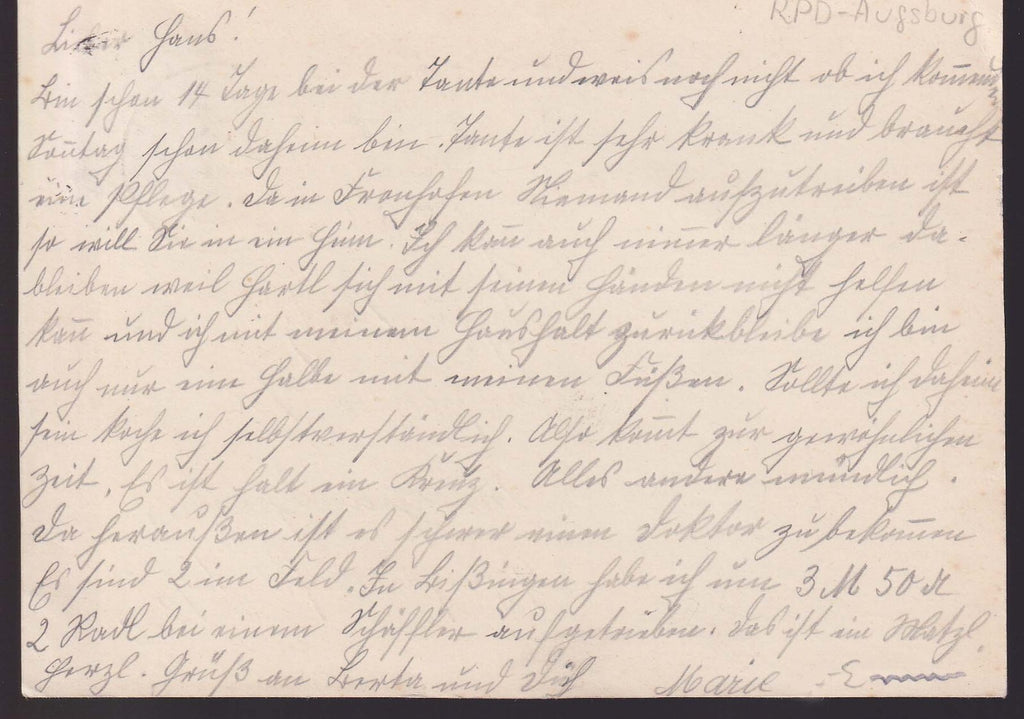 RPD-Augsburg
Lieber Hans!
Bin schon 14 Tage bei der Tante und weis noch nicht ob ich kommenden
Sonntag schon daheim bin. Tante ist sehr krank und braucht
eine Pflege. Da in Fronhofen Niemand aufzutreiben ist
so will Sie in ein Heim. Ich kann auch nimmer länger da-
bleiben weil Hartl sich mit seinen Händen nicht helfen
kann und ich mit meinem Haushalt zurückbleibe ich bin
auch nur eine Halbe mit meinen Füßen. Sollte ich daheim
sein koche ich selbstverständlich. Also kommt zur gewöhnlichen
Zeit. Es ist halt ein Kreuz. Alles andere mündlich.
Da heraußen ist es schwer einen Doktor zu bekommen
Es sind 2 im Feld. In Bißingen habe ich um 3 M 50 ₰
2 Radl bei einem Schäffler aufgetrieben. Das ist ein
Herzl. Gruß an Berta und Dich Marie